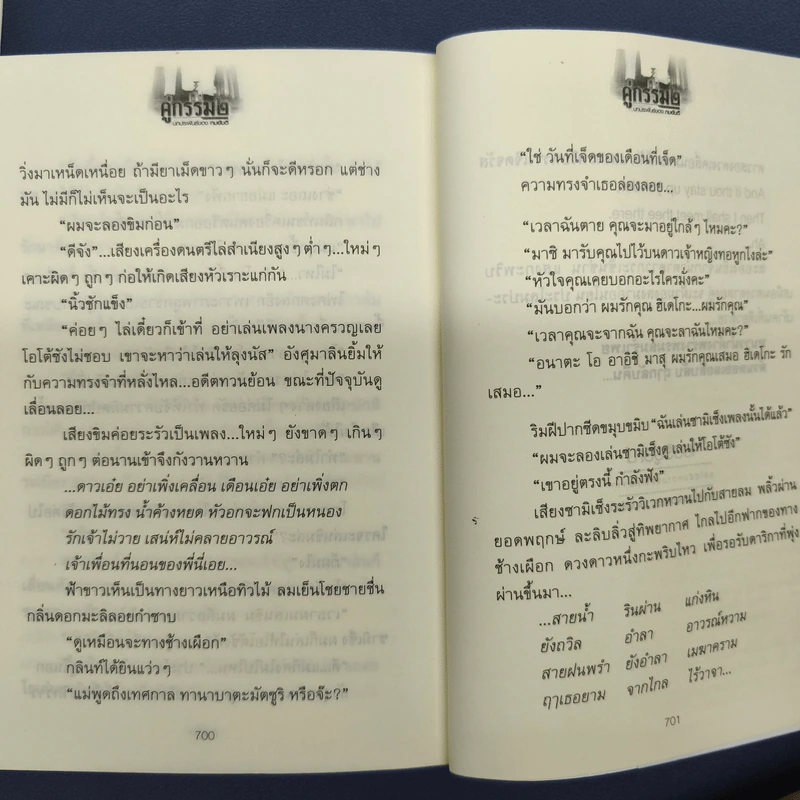 คู่กรรม๒
บทประพันธ์ของ ทมยันตี
วิ่งมาเหน็ดเหนื่อย ถ้ามียาเม็ดขาวๆ นั่นก็จะดีหรอก แต่ช่าง
มัน ไม่มีก็ไม่เห็นจะเป็นอะไร
“ผมจะลองขิมก่อน”
“ดีจัง”...เสียงเครื่องดนตรีไล่สำเนียงสูงๆ ต่ำๆ...ใหม่ๆ
เคาะผิดๆ ถูกๆ ก่อให้เกิดเสียงหัวเราะแก่กัน
“นิ้วชักแข็ง”
“ค่อยๆ ไล่เดี๋ยวก็เข้าที่ อย่าเล่นเพลงนางครวญเลย
โอโต้ซังไม่ชอบ เขาจะหาว่าเล่นให้ลุงนัส” อังศุมาลินยิ้มให้
กับความทรงจำที่หลั่งไหล...อดีตทวนย้อน ขณะที่ปัจจุบันดู
เลื่อนลอย...
เสียงขิมค่อยระรัวเป็นเพลง...ใหม่ๆ ยังขาดๆ เกินๆ
ผิดๆ ถูกๆ ต่อนานเข้าจึงกังวานหวาน
...ดาวเอ๋ย อย่าเพิ่งเคลื่อน เดือนเอ๋ย อย่าเพิ่งตก
ดอกไม้ทรง น้ำค้างหยด หัวอกจะฟกเป็นหนอง
รักเจ้าไม่วาย เสน่ห์ไม่คลายอาวรณ์
เจ้าเพื่อนที่นอนของพี่นี้เอย...
ฟ้าขาวเห็นเป็นทางยาวเหนือทิวไม้ ลมเย็นโชยชายชื่น
กลิ่นดอกมะลิลอยกำซาบ
“ดูเหมือนจะทางช้างเผือก”
กลินท์ได้ยินแว่วๆ
“แม่พูดถึงเทศกาล ทานาบาตะมัตซูริ หรือจ๊ะ?”
700
คู่กรรม๒
บทประพันธ์ของ ทมยันตี
“ใช่ วันที่เจ็ดของเดือนที่เจ็ด”
ความทรงจำเธอล่องลอย...
“เวลาฉันตาย คุณจะมาอยู่ใกล้ๆ ไหมคะ?”
“มาซิ มารับคุณไปไว้บนดาวเจ้าหญิงทอหูกไงล่ะ”
“หัวใจคุณเคยบอกอะไรใครมั่งคะ”
“มันบอกว่า ผมรักคุณ ฮิเดโกะ...ผมรักคุณ”
“เวลาคุณจะจากฉัน คุณจะลาฉันไหมคะ?”
“อนาตะ โอ อาอิชิ มาสุ ผมรักคุณเสมอ ฮิเดโกะ รัก
เสมอ...”
ริมฝีปากซีดขมุบขมิบ “ฉันเล่นซามิเซ็งเพลงนั้นได้แล้ว”
“ผมจะลองเล่นซามิเซ็งดู เล่นให้โอโต้ซัง”
“เขาอยู่ตรงนี้ กำลังฟัง”
เสียงซามิเซ็งระรัววิเวกหวานไปกับสายลม พลิ้วผ่าน
ยอดพฤกษ์ ละลิบลิ่วสู่ทิพยากาศ ไกลไปอีกฟากของทาง
ช้างเผือก ดวงดาวหนึ่งกะพริบไหว เพื่อรอรับดาริกาที่พุ่ง
ผ่านขึ้นมา...
...สายน้ำ รินผ่าน แก่งหิน
ยังถวิล อำลา อาวรณ์หวาม
สายฝนพรำ ยังอำลา เมฆาคราม
ฤๅเธอยาม จากไกล ไร้วาจา...
701